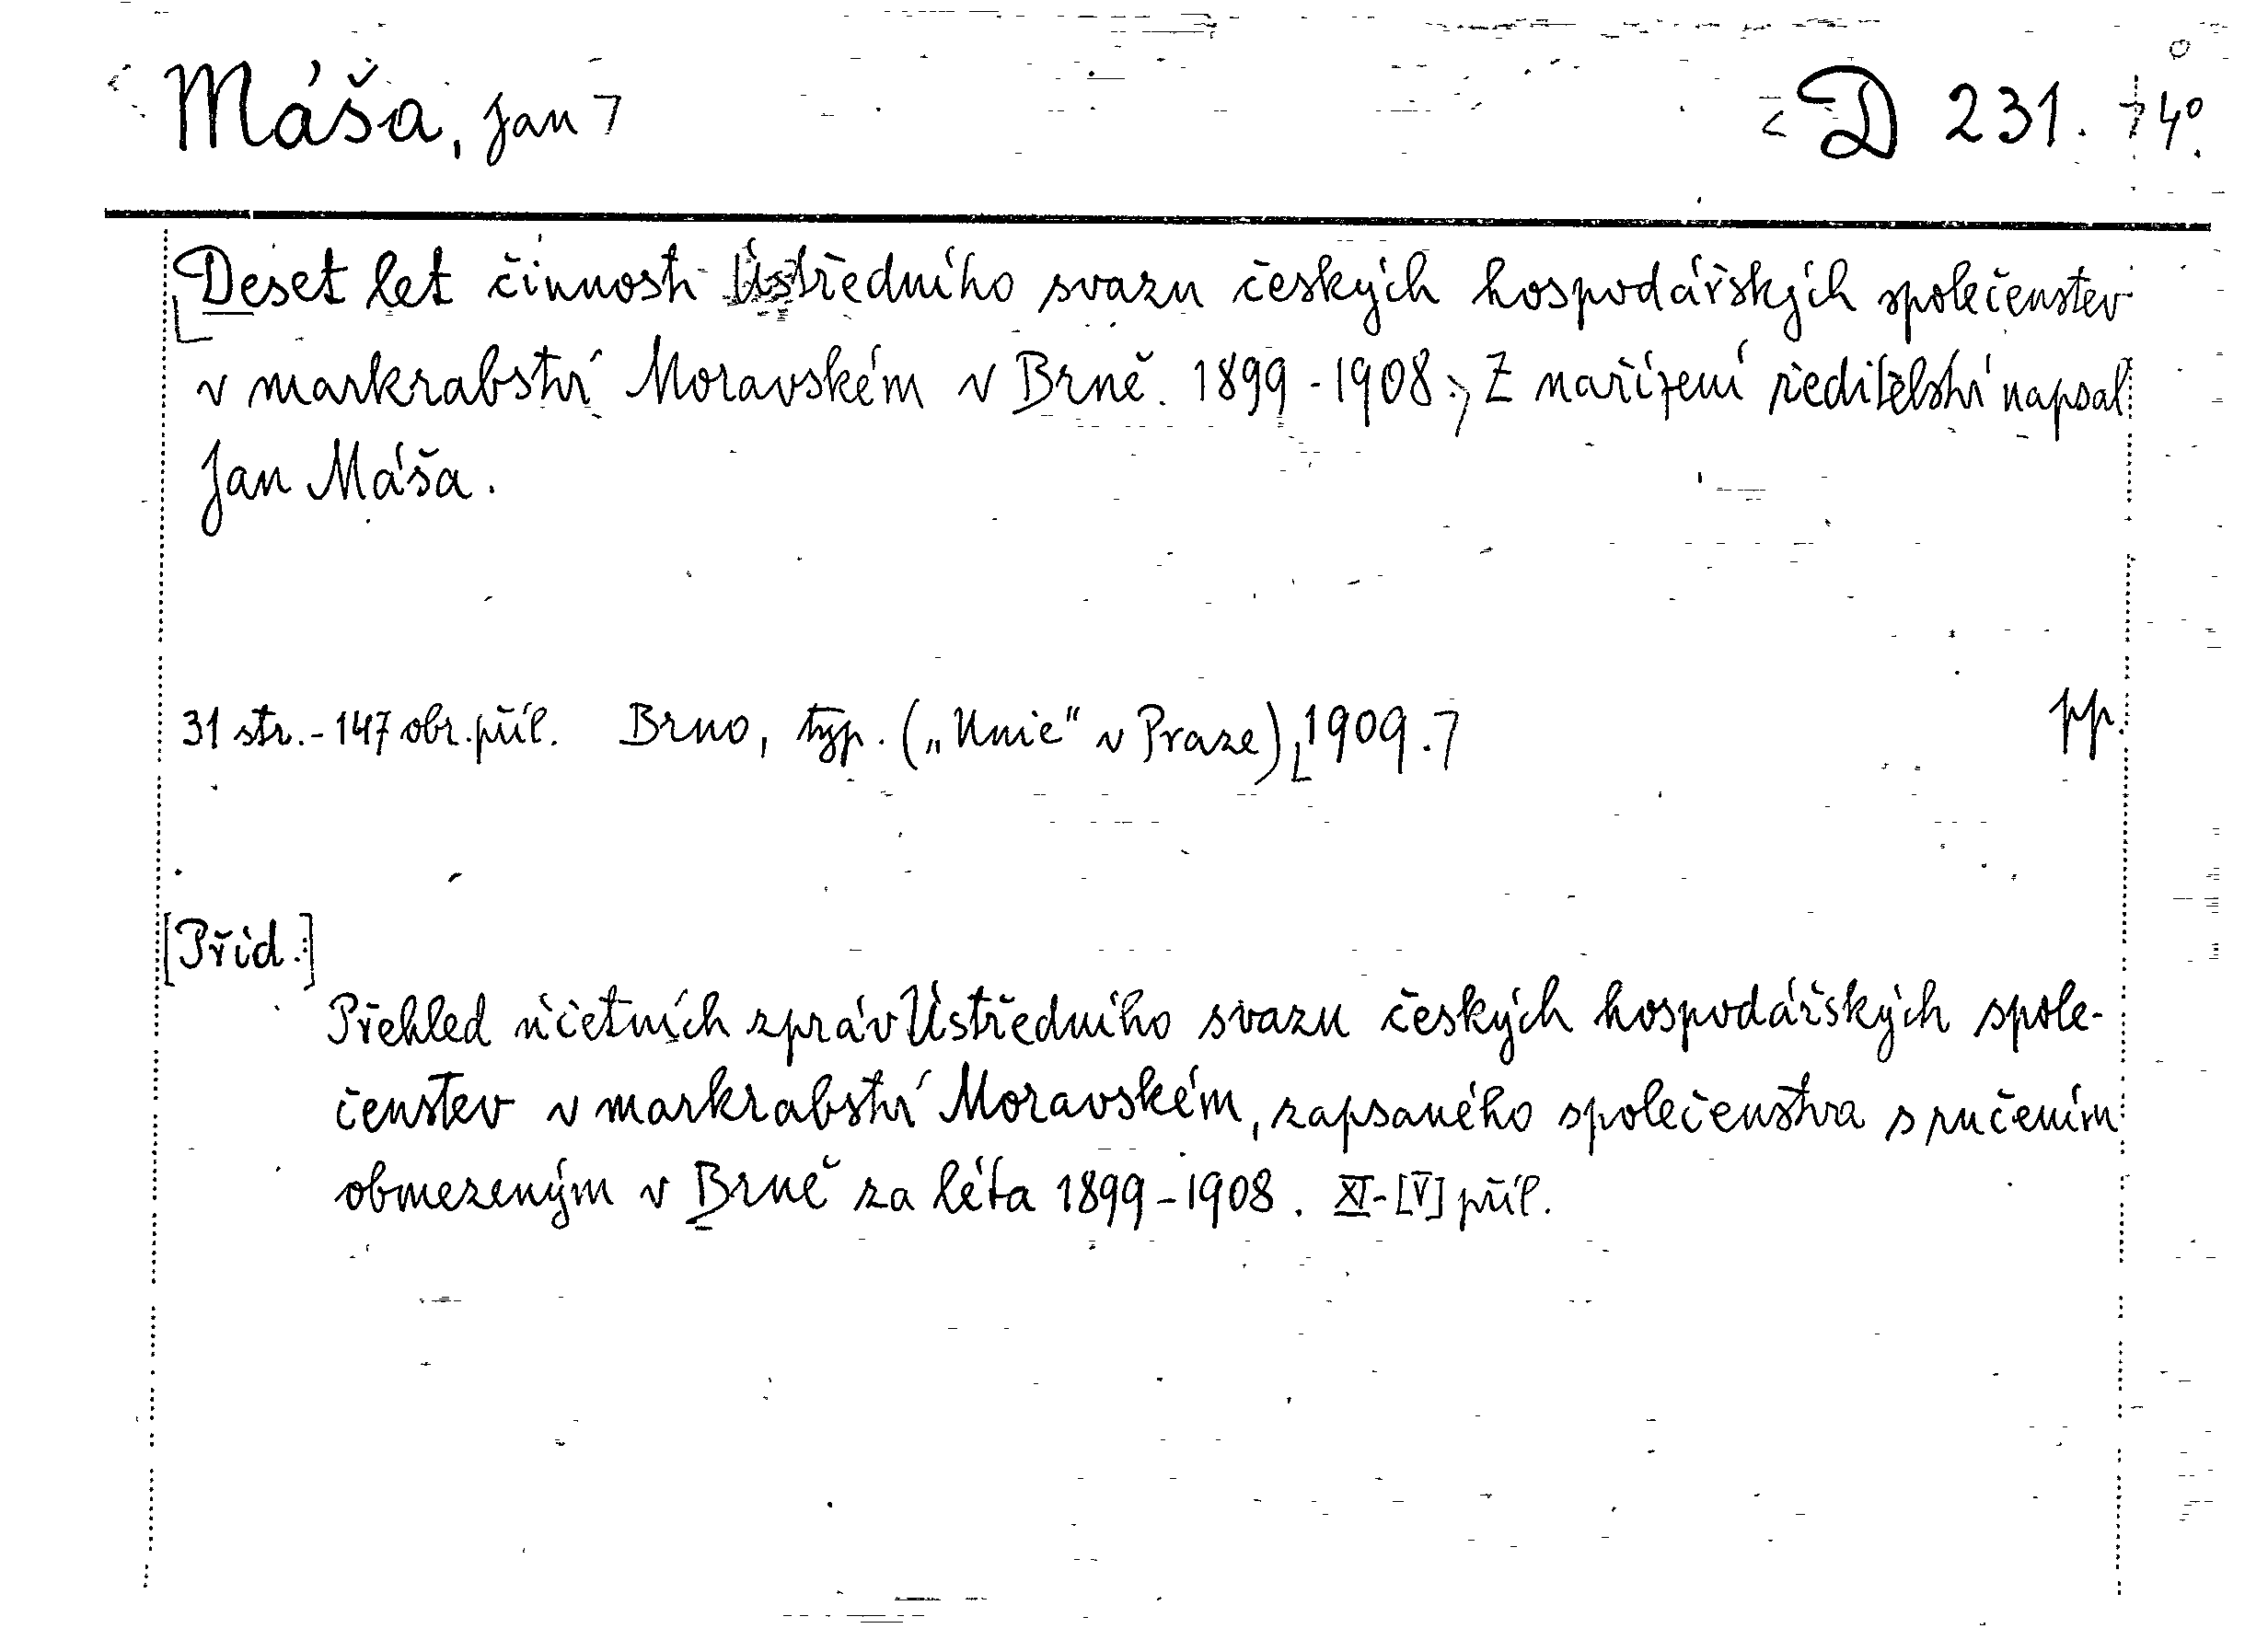 Máša, Jan
D 231. 4°.
Deset let činnosti Ústředního svazu českých hospodářských společenstev
v markrabství Moravském v Brně. 1899-1908. Z nařízení ředitelství napsal
Jan Máša.
31 str.- 147 obr. příl. Brno, typ. („Unie“ v Praze), 1909. pp.
[Přid.]
Přehled účetních zpráv Ústředního svazu českých hospodářských spole-
čenstev v markrabství Moravském, zapsaného společenstva s ručením
obmezeným v Brně za léta 1899-1908. XI-[V] příl.